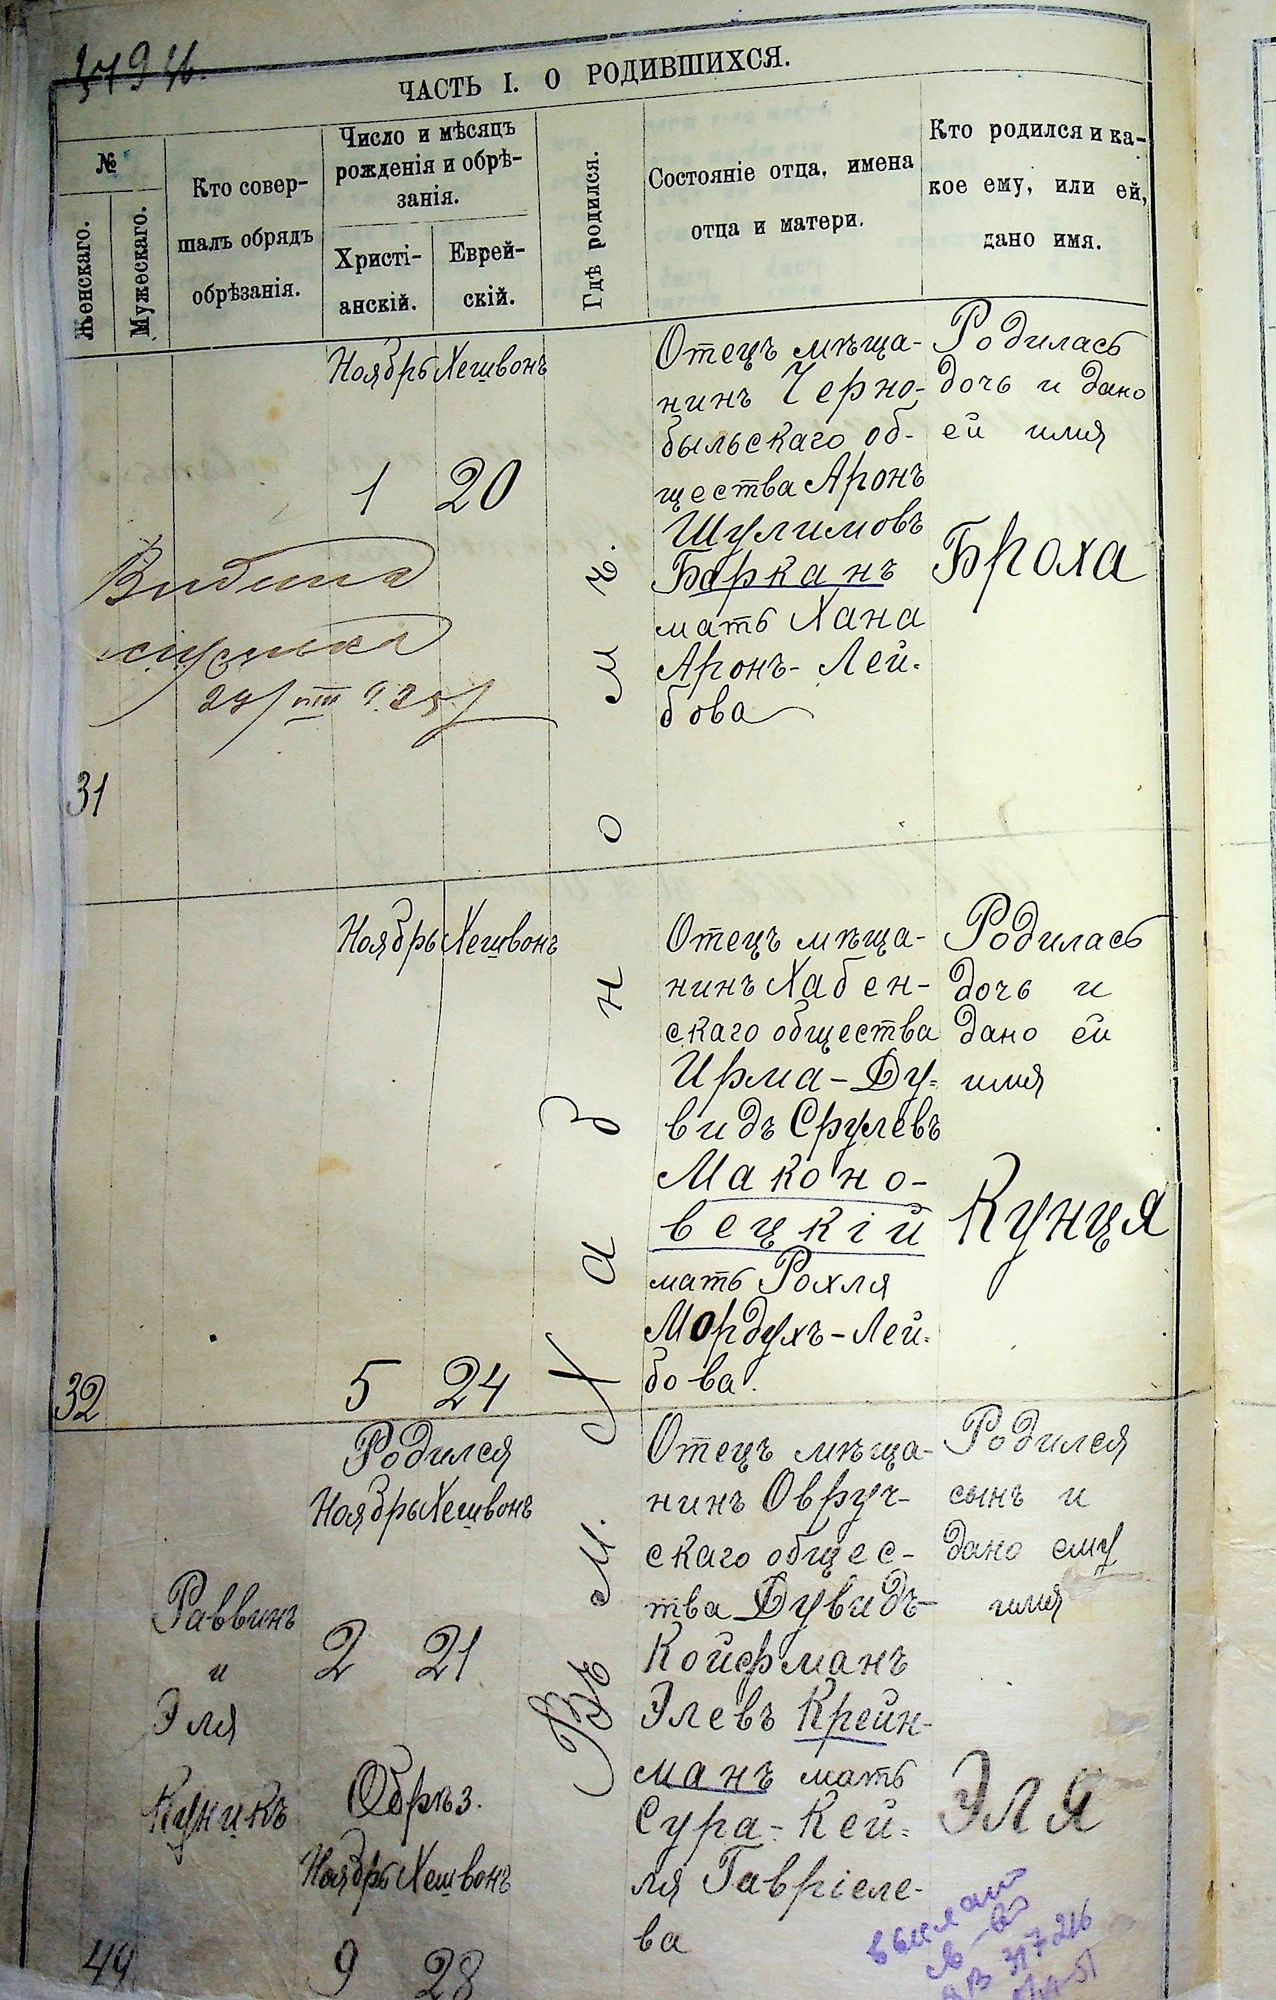 ЧАСТЬ I. О РОДИВШИХСЯ.
№
Женскаго.
Мужескаго.
Кто совер-
шалъ обрядъ
обрѣзанія.
Число и мѣсяцъ
рожденія и обрѣ-
занія.
Христі-
анскій.
Еврей-
скій.
Гдѣ родился.
Состояніе отца, имена
отца и матери.
Кто родился и ка-
кое ему, или ей,
дано имя.
31
Ноябрь Хешвонъ
1 20
Отецъ мѣща-
нинъ Черно-
быльскаго об-
щества Аронъ
Шулимовъ
Барканъ
мать Хана
Аронъ-Лей-
бова
Родилась
дочь и дано
ей имя
Броха
32
Ноябрь Хешвонъ
5 24
Отецъ мѣща-
нинъ Хабен-
скаго общества
Ирма-Ду-
видъ Срулевъ
Маконо-
вецкій
мать Рохля
Мордухъ-Лей-
бова.
Родилась
дочь и
дано ей
имя
Кунця
49
Раввинъ
и
Эля
Куникъ
Родился
Ноябрь Хешвонъ
2 21
Обрѣз.
Ноябрь Хешвонъ
9 28
Въ м. Хазномъ.
Отецъ мѣща-
нинъ Овруч-
скаго общес-
тва Дувидъ-
Койфманъ
Элевъ Крейн-
манъ мать
Сура-Кей-
ля Гавріеле-
ва
Родился
сынъ и
дано ему
имя
Эля